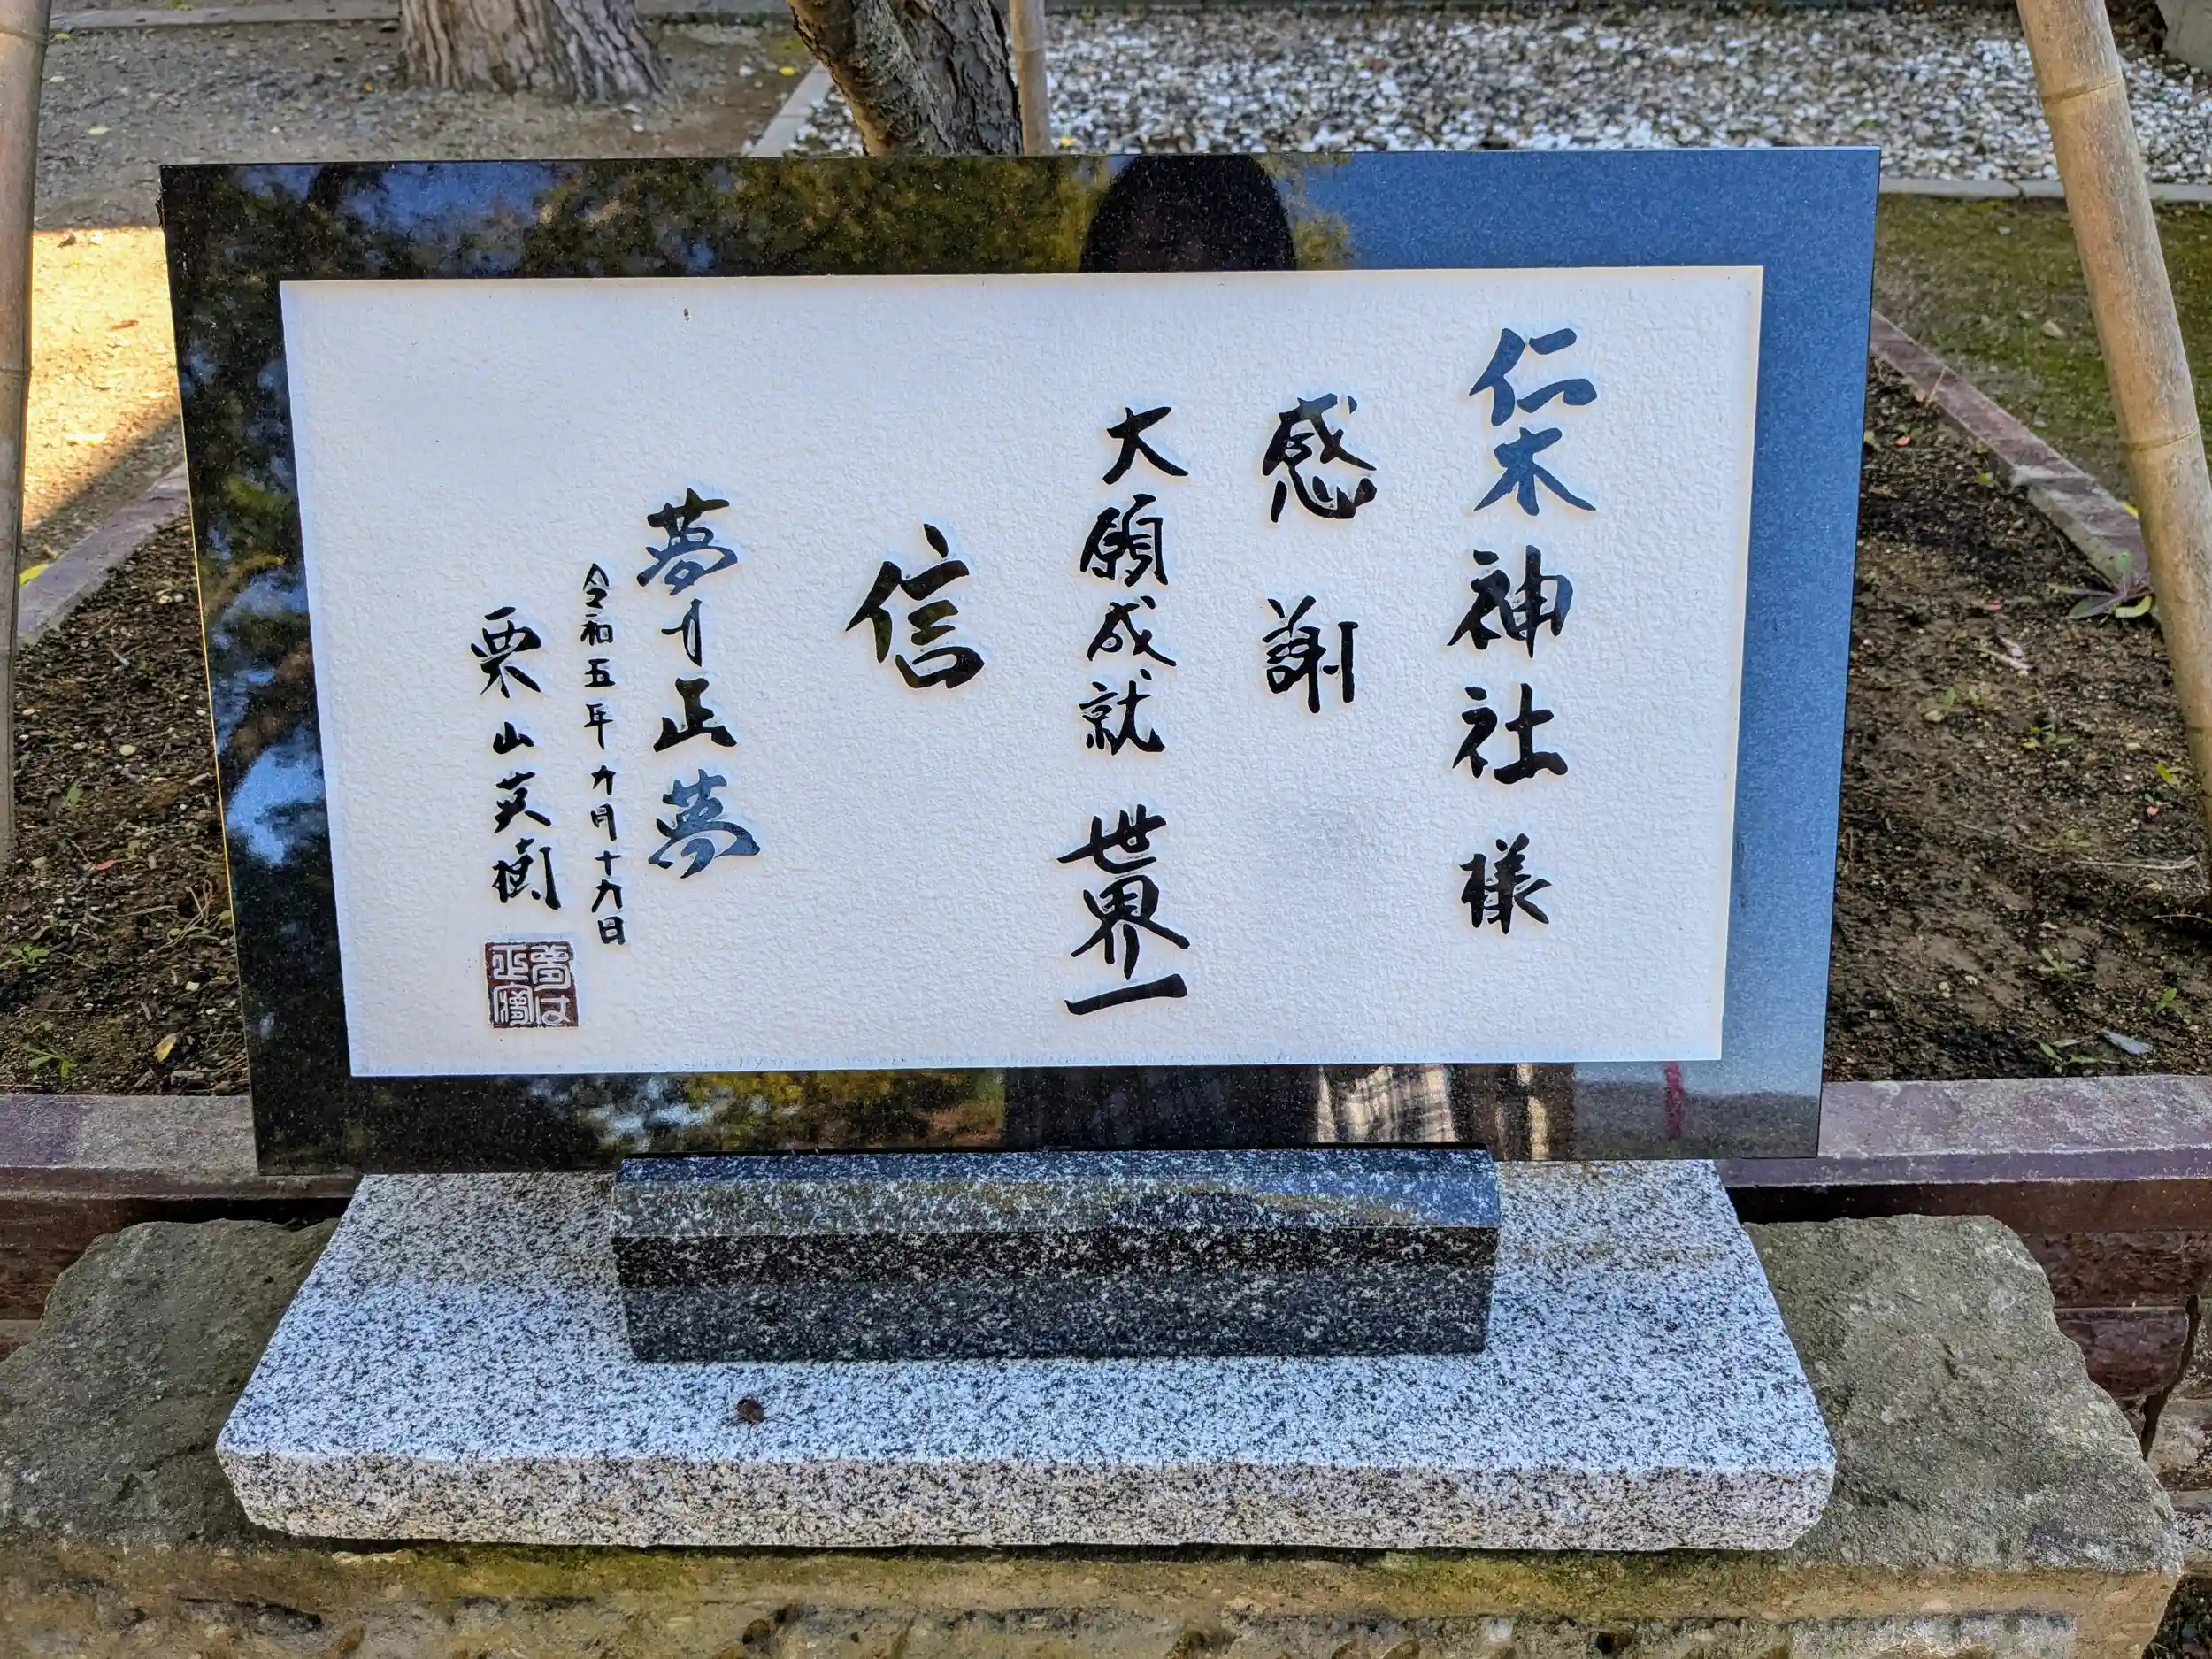 仁木神社様
感謝
大願成就 世界一
信
夢は正夢
令和五年九月十九日
栗山英樹
夢は
正夢